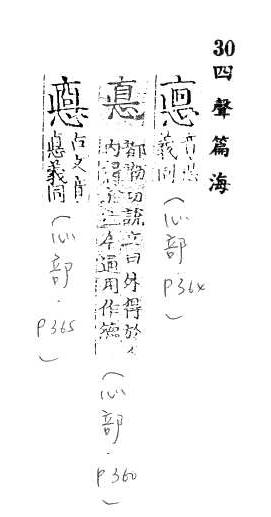 30四聲篇海
音悳
義同
(心部.P364)
悳
都勒切說文曰外得於人
內得於己今通用作德
(心部.P360)
古文音
悳義同
(心部.P365)